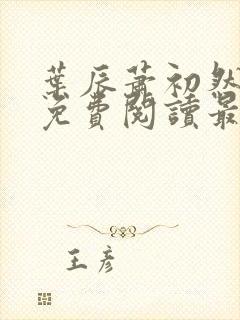 葉辰蕭初然
免費閱讀最
王彥